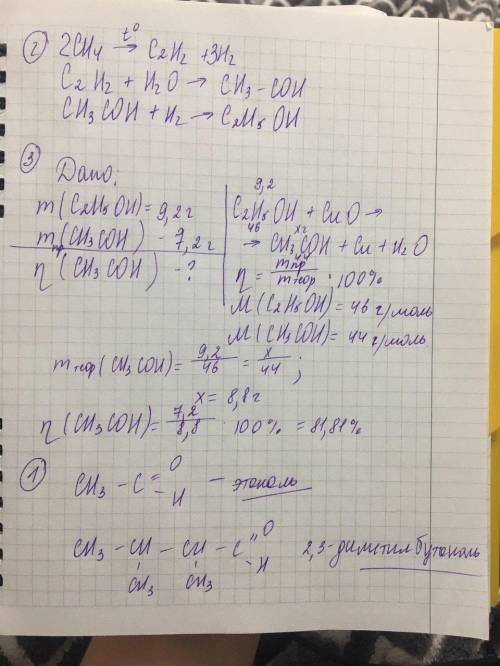 ② 2CH4 t° → C2H2 + 3H2
C2H2 + H2O → CH3 - COH
CH3COH + H2 → C2H5OH
③ Дано:
m(C2H5OH) = 9,2 г
mпр(CH3COH) - 7,2 г
η(CH3COH) - ?
9,2
C2H5OH + CuO →
46 хг
→ CH3COH + Cu + H2O
44
η = mпр / mтеор · 100%
M(C2H5OH) = 46 г/моль
M(CH3COH) = 44 г/моль
mтеор(CH3COH) = 9,2 / 46 = x / 44 ;
x = 8,8 г
η(CH3COH) = 7,2 / 8,8 · 100% = 81,81%
① CH3 - C = O - H - этаналь
CH3 - CH - CH - C = O - H 2,3-диметилбутаналь
CH3 CH3